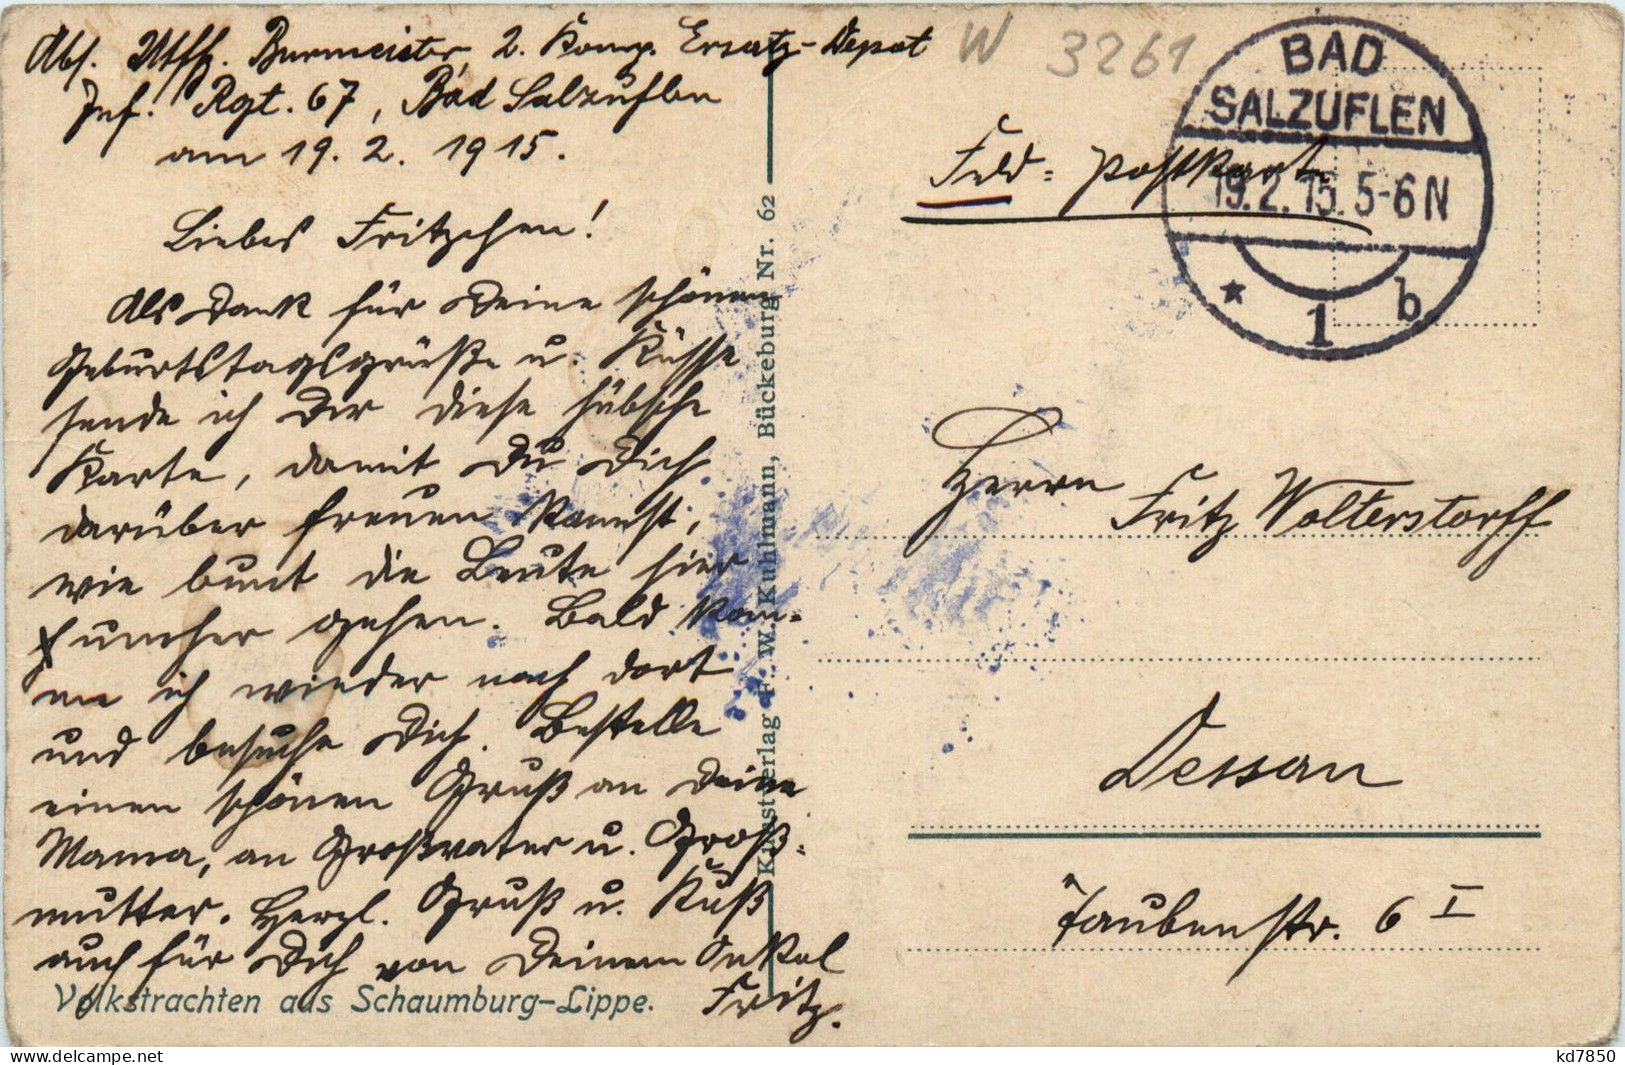 Abs. Utffz. Burmeister, 2. Komp. Ersatz-Depot
Inf. Rgt. 67, Bad Salzuflen
am 19. 2. 1915.
Liebes Fritzchen!
Als Dank für Deine schönen
Geburtstagsgrüße u. Küsse
sende ich Dir diese hübsche
Karte, damit Du Dich
darüber freuen kannst,
wie bunt die Leute hier
umher gehen. Bald kom-
me ich wieder nach dort
und besuche Dich. Bestelle
einen schönen Gruß an Deine
Mama, an Großvater u. Groß-
mutter. Herzl. Gruß u. Kuß
auch für Dich von Deinem Onkel
Fritz.
Volkstrachten aus Schaumburg-Lippe.
Kunstverlag F. W. Kuhlmann, Bückeburg Nr. 62
W 3261
BAD
SALZUFLEN
19.2.15. 5-6 N
* 1 b
Feld = Postkarte
Herrn
Fritz Wolterstorff
Dessau
Taubenstr. 6 I
kd7850